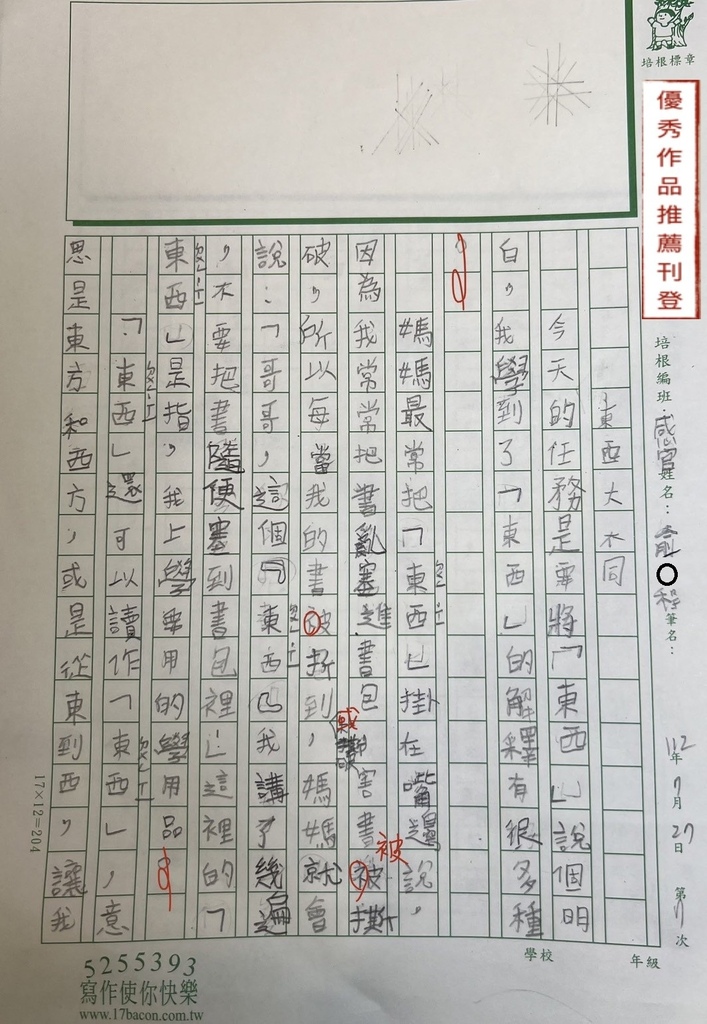 培根標章
優秀作品推薦刊登
培根編班：感官 姓名：俞○程 筆名：
112年7月27日 第7次
年級
學校
東西大不同
今天的任務是要將「東西」說個明
白，我學到了「東西」的解釋有很多種
。
媽媽最常把「東西」掛在嘴邊說，
ㄉㄨㄥ ㄒㄧ
因為我常常把書亂塞進書包 害書被撕
被
破，所以每當我的書被折到，媽媽就會
說：「哥哥，這個『東西』我講了幾遍
ㄉㄨㄥ ㄒㄧ
，不要把書隨便塞到書包裡！」這裡的「
東西」是指，我上學要用的學用品。
ㄉㄨㄥ ㄒㄧ
「東西」還可以讀作「東西」，意
ㄉㄨㄥ ㄒㄧ
ㄉㄨㄥ ㄒㄧ
思是東方和西方，或是從東到西，讓我
17×12=204
5255393
寫作使你快樂
www.17bacon.com.tw